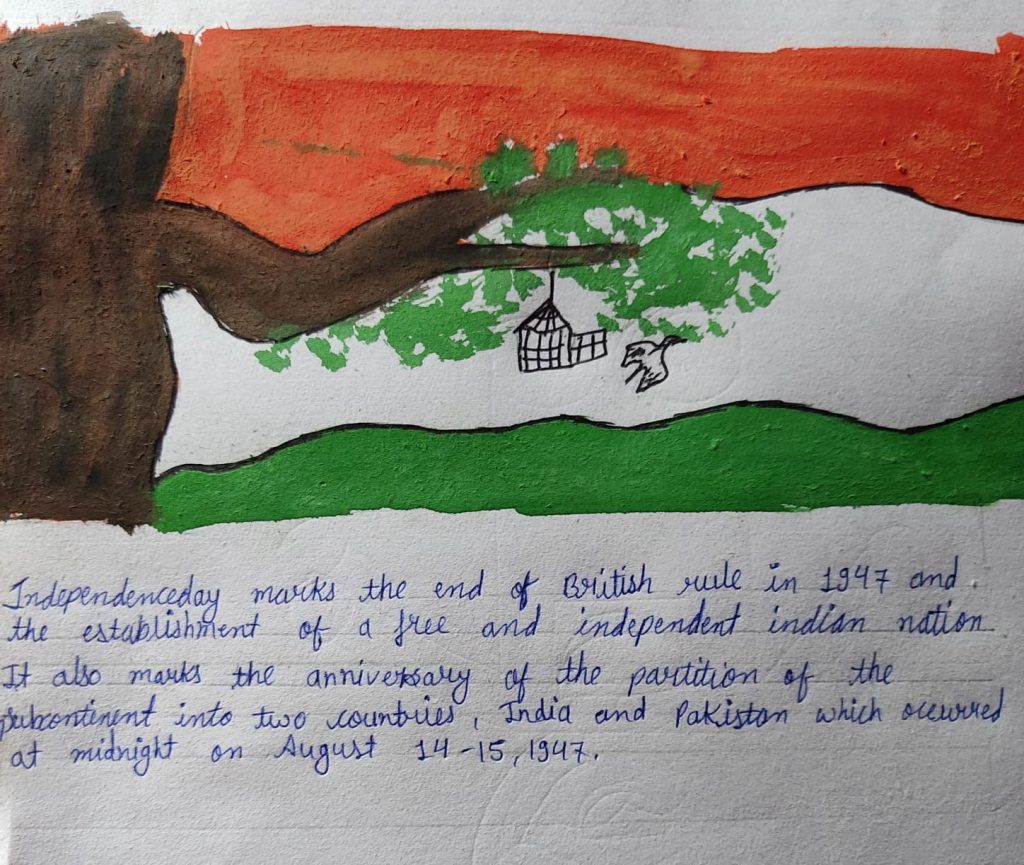 Independenceday marks the end of British rule in 1947 and
the establishment of a free and independent indian nation
It also marks the anniversary of the partition of the
subcontinent into two countries, India and Pakistan which ocurred
at midnight on August 14-15, 1947.